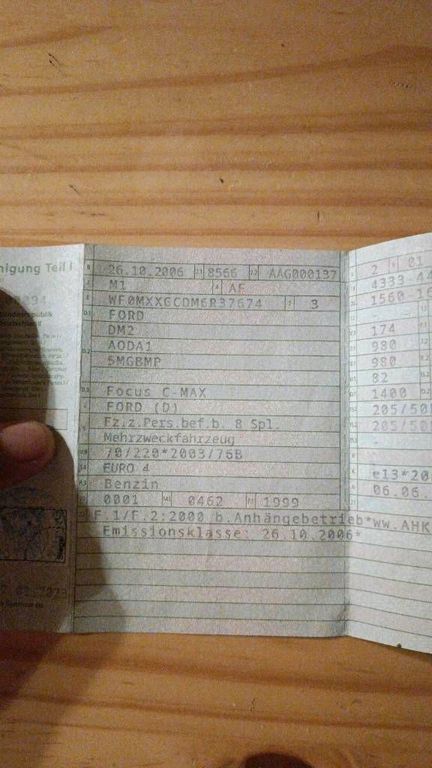 nigung Teil I
26.10.2006 8566 AAG000137
M1 AF
WF0MXXGCDM6R37674 3
FORD
DM2
AODA1
5MGBMP
Focus C-MAX
FORD (D)
Fz.z.Pers.bef.b. 8 Spl.
Mehrzweckfahrzeug
70/220*2003/76B
EURO 4
Benzin
0001 0462 1999
F.1/F.2:2000 b.Anhängebetrieb*ww.AHK
Emissionsklasse: 26.10.2006*
2 01
4333
1560
174
980
980
82
1400
205/50
205/50
e13*20
06.06.